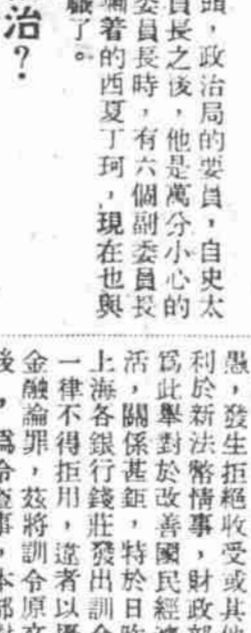 頭，政治局的要員，自史太
員長之後，他是萬分小心的
委員長時，有六個副委員長
着的西夏丁珂，現在也與
職了。
治？
愚，發生拒絕收受或其他
利於新法幣情事，財政部
爲此舉對於改善國民經濟
活，關係甚鉅，特於日昨
上海各銀行錢莊發出訓令
一律不得拒用，違者以擾
金融論罪，茲將訓令原文
後，爲令遵事，本部